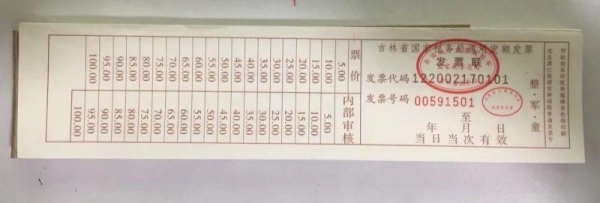 吉林省国家税务局通用定额发票
发票联
发票代码122002170101
发票号码 00591501
整·军·童
至
年 月 日
当日当次有效
票价
5.00
10.00
15.00
20.00
25.00
30.00
35.00
40.00
45.00
50.00
55.00
60.00
65.00
70.00
75.00
80.00
85.00
90.00
95.00
100.00
内部审核
5.00
10.00
15.00
20.00
25.00
30.00
35.00
40.00
45.00
50.00
55.00
60.00
65.00
70.00
75.00
80.00
85.00
90.00
95.00
100.00